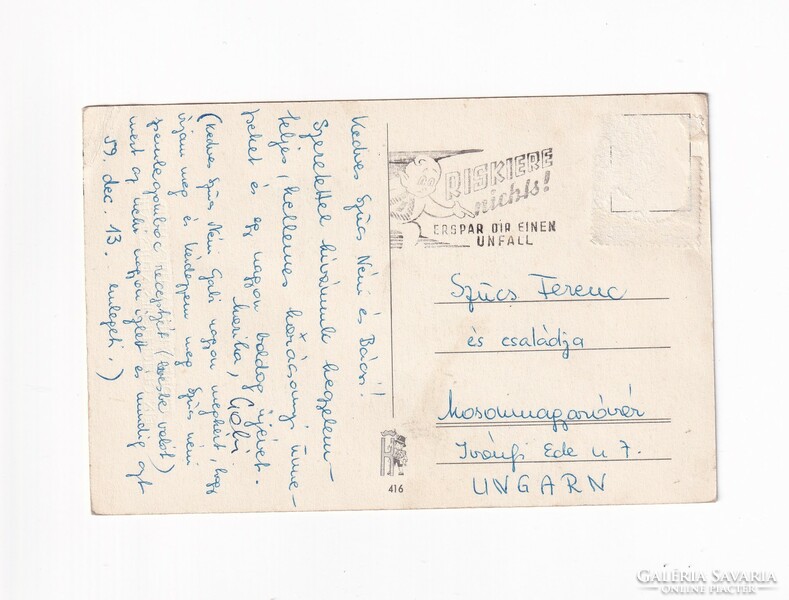 Kedves Szűcs Néni és Bácsi!
Szeretettel kívánunk kegyelem-
teljes, kellemes karácsonyi ünne-
peket és egy nagyon boldog újévet.
Marika, Gabi
(Kedves Szűcs Néni Gabi nagyon megkért, hogy
írjam meg és kérdezzem meg Szűcs néni
receptjét (levesbe valót)
mert az neki nagyon ízlett és mindig azt
59. dec. 13. emlegeti.)
RISKIERE
nichts!
ERSPAR DIR EINEN
UNFALL
Szücs Ferenc
és családja
Mosonmagyaróvár
Ede u 7.
UNGARN
416
GALÉRIA SAVARIA
ONLINE PIACTÉR